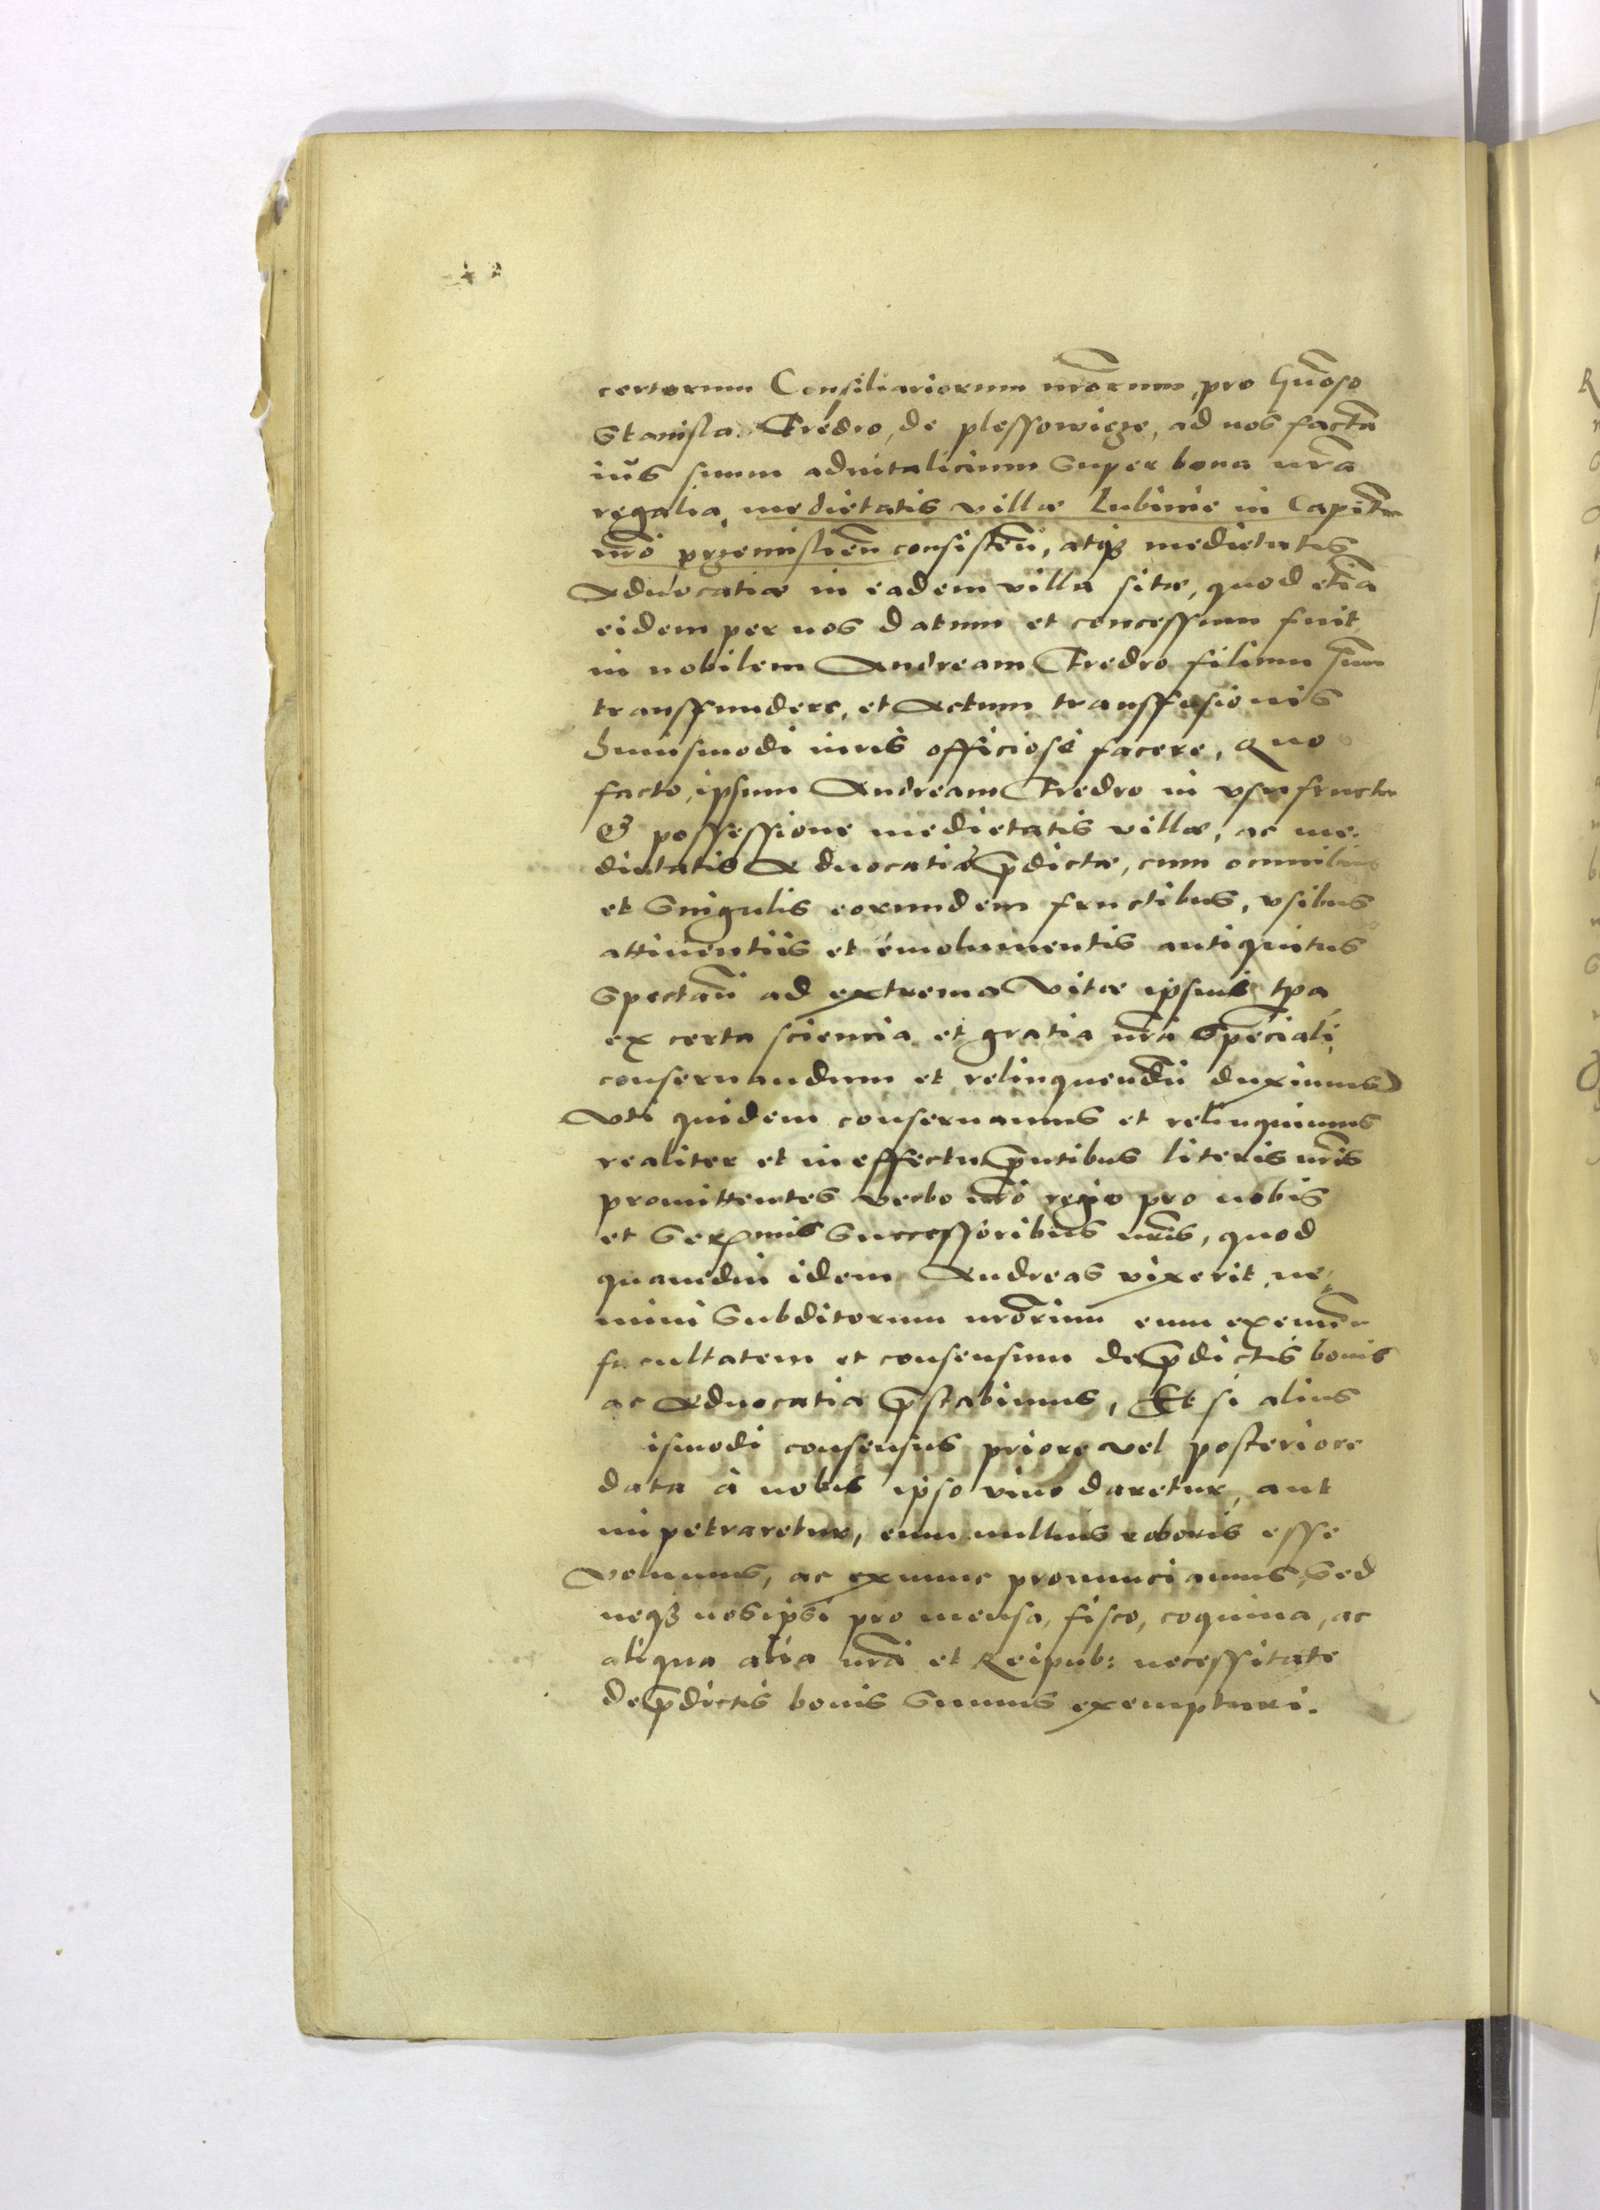 certorum Consiliariorum nr̄orum, pro Gn̄oso
Stanisla Fredro, de plessowicze, ad nos factā
ius suum aduitalicium super bona nr̄a
regalia, medietatis villæ Lubinie in Capitn̄
nr̄o przemislien̄ consisten̄, atq3 medietatis
Aduocatiæ in eadem villa sitæ, quod etiā
eidem per nos datum et concessum fuit
in nobilem Andream Fredro filium suum
transfundere, et Actum transfusionis
huiusmodi iuris officiose facere, quo
facto, ipsum Andream Fredro in vsufructu
& possessione medietatis villæ, ac me-
dietatis Aduocatiæ p̄dictæ, cum omnibus
et singulis eorundem fructibus, vsibus
attinentiis et emolumentis antiquitus
spectan̄ ad extrema vitæ ipsius tp̄a
ex certa sciencia et gratia nr̄a speciali,
conseruandum et relinquendū duximus
vti quidem conseruamus et relinquimus
realiter et in effectu p̄ntibus literis nr̄is
promittentes verbo nr̄o regio pro nobis
et Serenmis Successoribus nr̄is, quod
quamdiu idem Andreas vixerit, ne-
mini subditorum nr̄orum eum eximen̄
facultatem et consensum de p̄dictis bonis
ac Aduocatia p̄stabimus, Et si alius
ismodi consensus priore vel posteriore
data à nobis ipso viuo daretur, aut
impetraretur, eum nullius roboris esse
volumus, ac exnunc pronunciamus, sed
neq3 nosipsi pro mensa, fisco, coquina, ac
aliqua alia nr̄a et Reipub: necessitate
de p̄dictis bonis sumus exempturi.